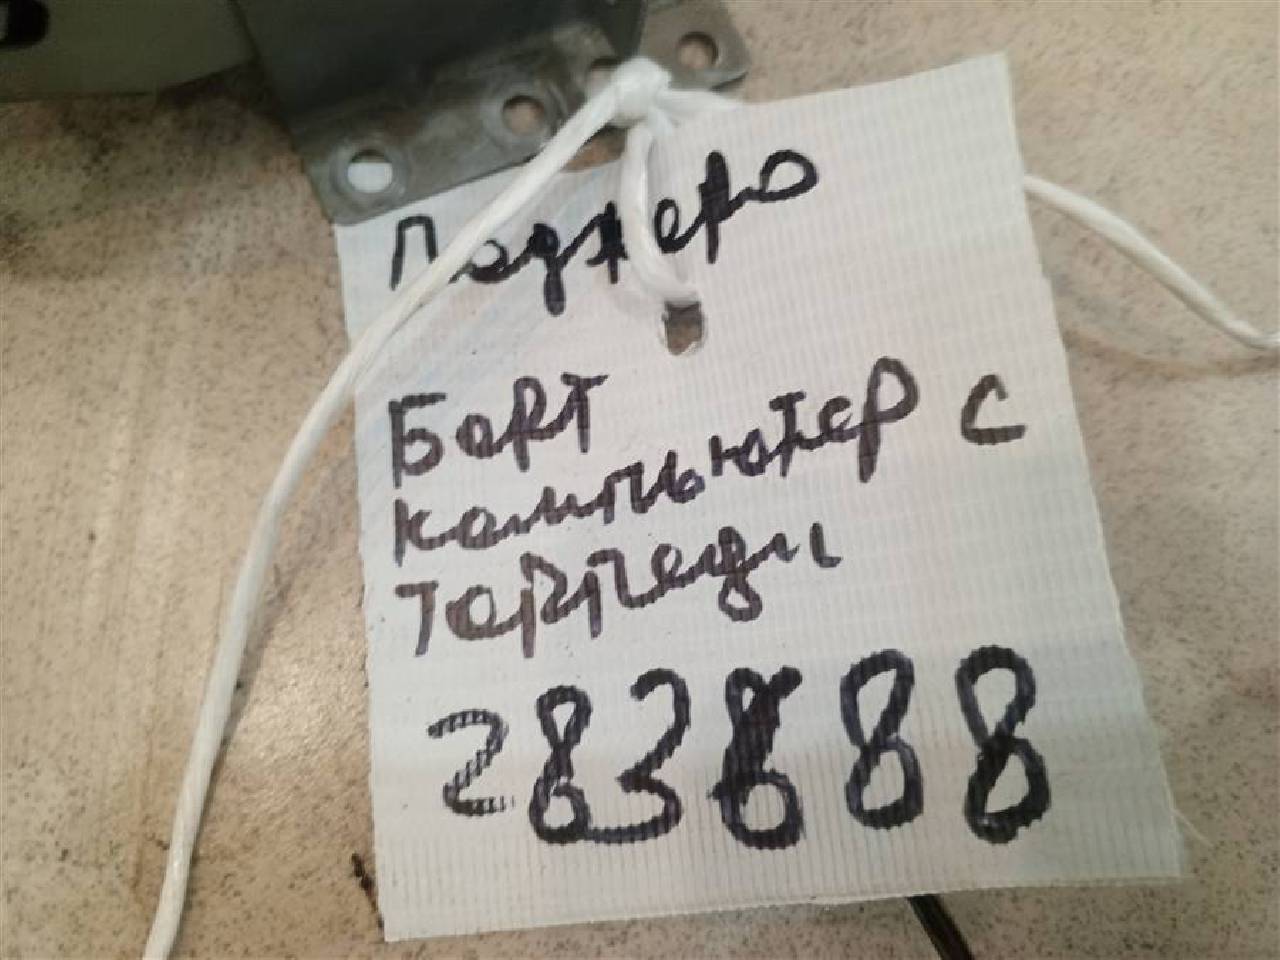 Паджеро
Борт
компьютер с
торпеды
283888